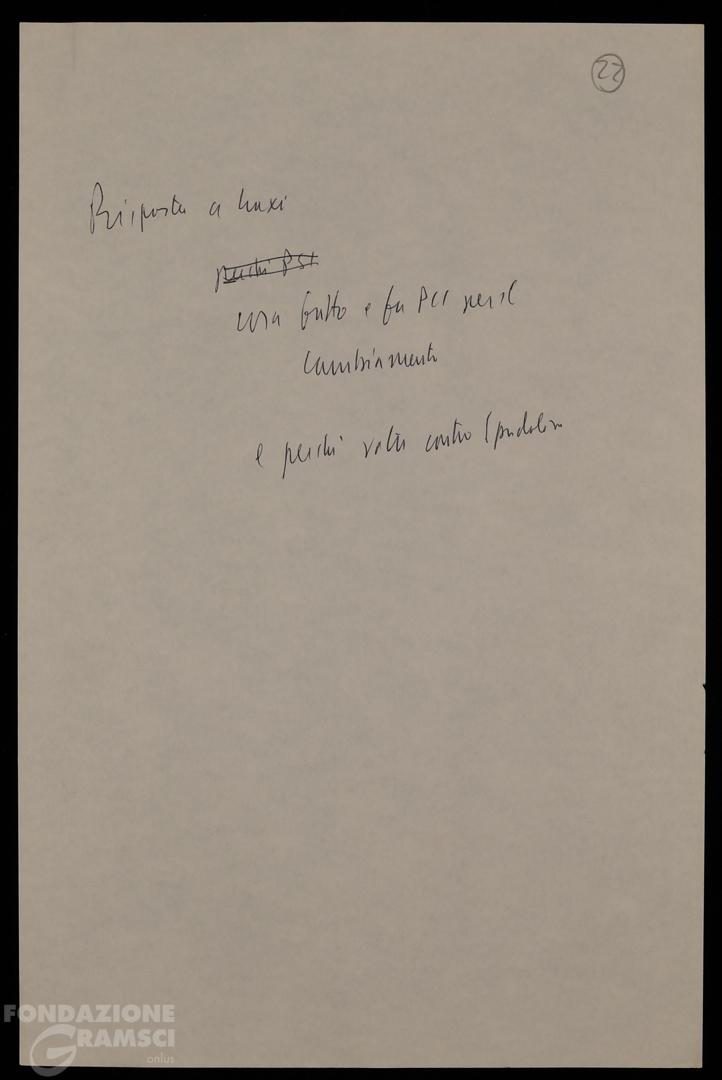 22
Risposta a Craxi
perché PSI
cosa fatto e fa PCI per il
cambiamento
e perché vota contro Spadolini
FONDAZIONE
GRAMSCI
onlus